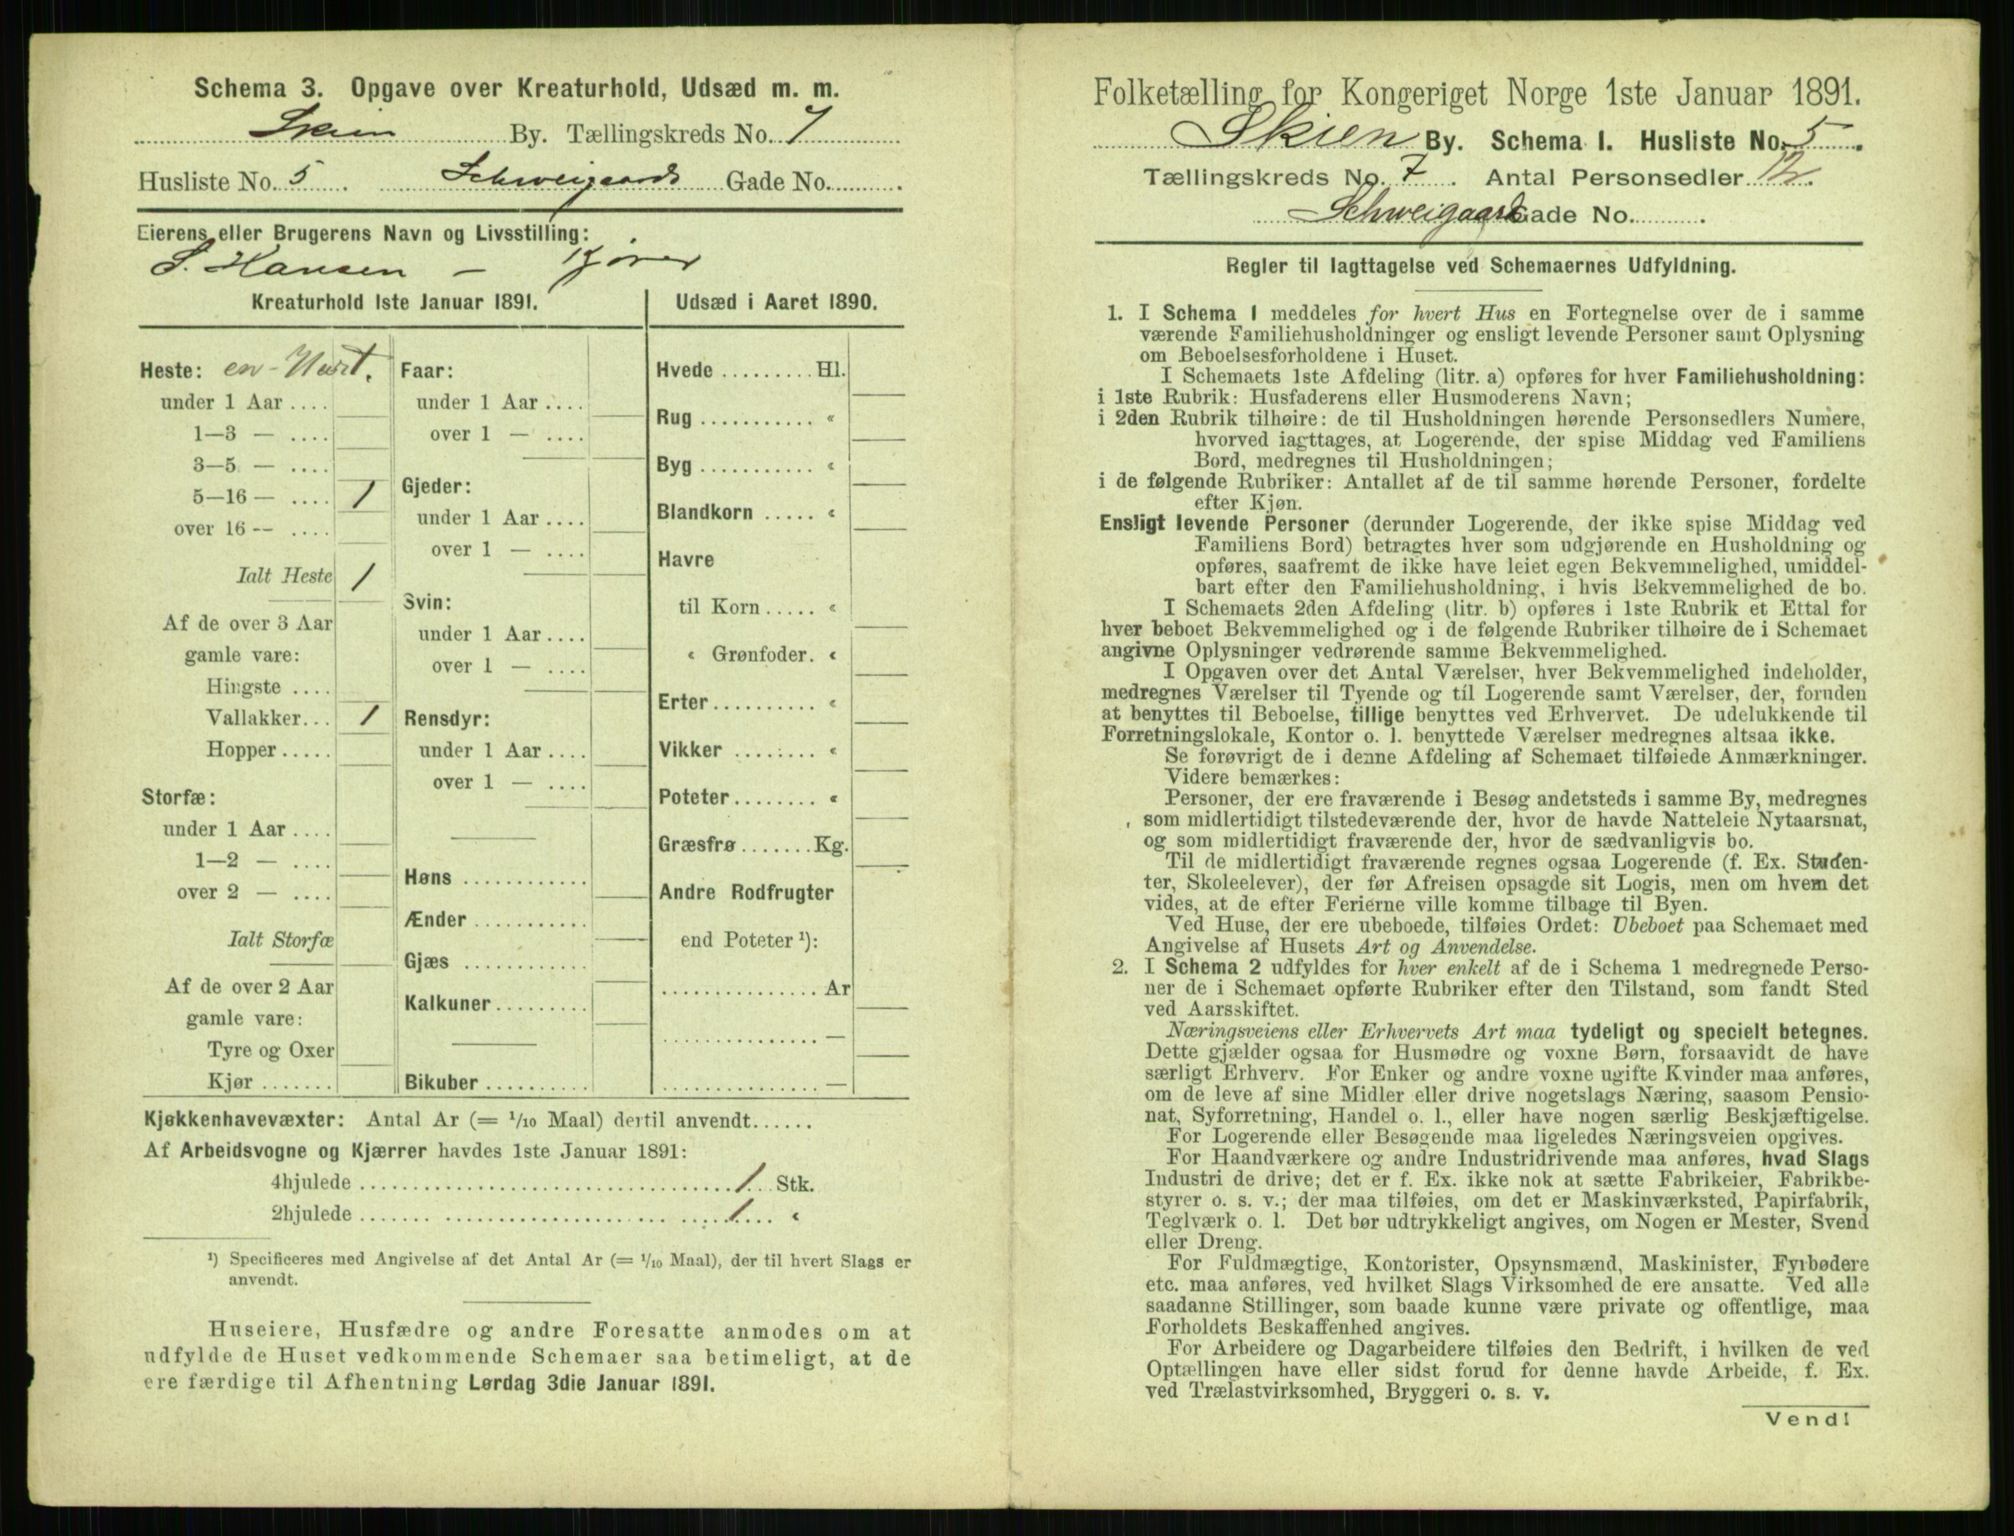 Schema 3. Opgave over Kreaturhold, Udsæd m. m.
Skien By. Tællingskreds No. 7
Husliste No. 5 Schweigaards Gade No.
Eierens eller Brugerens Navn og Livsstilling:
S. Hansen –
Kreaturhold 1ste Januar 1891.
Heste: en
under 1 Aar ....
1—3 — ....
3—5 — ....
5—16 — .... 1
over 16 -- ....
Ialt Heste 1
Af de over 3 Aar
gamle vare:
Hingste ....
Vallakker... 1
Hopper .....
Storfæ:
under 1 Aar ....
1—2 — ....
over 2 — ....
Ialt Storfæ
Af de over 2 Aar
gamle vare:
Tyre og Oxer
Kjør .......
Faar:
under 1 Aar ....
over 1 — ....
Gjeder:
under 1 Aar ....
over 1 — ....
Svin:
under 1 Aar ....
over 1 — ....
Rensdyr:
under 1 Aar ....
over 1 — ....
Høns ............
Ænder ...........
Gjæs ............
Kalkuner.........
Bikuber ..........
Udsæd i Aaret 1890.
Hvede ......... Hl.
Rug ........... «
Byg ........... «
Blandkorn ..... «
Havre
til Korn ..... «
« Grønfoder. «
Erter.......... «
Vikker ........ «
Poteter........ «
Græsfrø....... Kg.
Andre Rodfrugter
end Poteter ¹):
............... Ar
............... —
............... —
Kjøkkenhavevæxter: Antal Ar (= 1/10 Maal) dertil anvendt......
Af Arbeidsvogne og Kjærrer havdes 1ste Januar 1891:
4hjulede ................................... 1 Stk.
2hjulede ................................... 1 «
¹) Specificeres med Angivelse af det Antal Ar (= 1/10 Maal), der til hvert Slags er
anvendt.
Huseiere, Husfædre og andre Foresatte anmodes om at
udfylde de Huset vedkommende Schemaer saa betimeligt, at de
ere færdige til Afhentning Lørdag 3die Januar 1891.
Folketælling for Kongeriget Norge 1ste Januar 1891.
Skien By. Schema I. Husliste No. 5.
Tællingskreds No. 7. Antal Personsedler 12.
Schweigaards Gade No. .
Regler til Iagttagelse ved Schemaernes Udfyldning.
1. I Schema 1 meddeles for hvert Hus en Fortegnelse over de i samme
værende Familiehusholdninger og ensligt levende Personer samt Oplysning
om Beboelsesforholdene i Huset.
I Schemaets 1ste Afdeling (litr. a) opføres for hver Familiehusholdning:
i 1ste Rubrik: Husfaderens eller Husmoderens Navn;
i 2den Rubrik tilhøire: de til Husholdningen hørende Personsedlers Numere,
hvorved iagttages, at Logerende, der spise Middag ved Familiens
Bord, medregnes til Husholdningen;
i de følgende Rubriker: Antallet af de til samme hørende Personer, fordelte
efter Kjøn.
Ensligt levende Personer (derunder Logerende, der ikke spise Middag ved
Familiens Bord) betragtes hver som udgjørende en Husholdning og
opføres, saafremt de ikke have leiet egen Bekvemmelighed, umiddel-
bart efter den Familiehusholdning, i hvis Bekvemmelighed de bo.
I Schemaets 2den Afdeling (litr. b) opføres i 1ste Rubrik et Ettal for
hver beboet Bekvemmelighed og i de følgende Rubriker tilhøire de i Schemaet
angivne Oplysninger vedrørende samme Bekvemmelighed.
I Opgaven over det Antal Værelser, hver Bekvemmelighed indeholder,
medregnes Værelser til Tyende og til Logerende samt Værelser, der, foruden
at benyttes til Beboelse, tillige benyttes ved Erhvervet. De udelukkende til
Forretningslokale, Kontor o. l. benyttede Værelser medregnes altsaa ikke.
Se forøvrigt de i denne Afdeling af Schemaet tilføiede Anmærkninger.
Videre bemærkes:
Personer, der ere fraværende i Besøg andetsteds i samme By, medregnes
som midlertidigt tilstedeværende der, hvor de havde Natteleie Nytaarsnat,
og som midlertidigt fraværende der, hvor de sædvanligvis bo.
Til de midlertidigt fraværende regnes ogsaa Logerende (f. Ex. Studen-
ter, Skoleelever), der før Afreisen opsagde sit Logis, men om hvem det
vides, at de efter Ferierne ville komme tilbage til Byen.
Ved Huse, der ere ubeboede, tilføies Ordet: Ubeboet paa Schemaet med
Angivelse af Husets Art og Anvendelse.
2. I Schema 2 udfyldes for hver enkelt af de i Schema 1 medregnede Perso-
ner de i Schemaet opførte Rubriker efter den Tilstand, som fandt Sted
ved Aarsskiftet.
Næringsveiens eller Erhvervets Art maa tydeligt og specielt betegnes.
Dette gjælder ogsaa for Husmødre og voxne Børn, forsaavidt de have
særligt Erhverv. For Enker og andre voxne ugifte Kvinder maa anføres,
om de leve af sine Midler eller drive nogetslags Næring, saasom Pensio-
nat, Syforretning, Handel o. l., eller have nogen særlig Beskjæftigelse.
For Logerende eller Besøgende maa ligeledes Næringsveien opgives.
For Haandværkere og andre Industridrivende maa anføres, hvad Slags
Industri de drive; det er f. Ex. ikke nok at sætte Fabrikeier, Fabrikbe-
styrer o. s. v.; der maa tilføies, om det er Maskinværksted, Papirfabrik,
Teglværk o. l. Det bør udtrykkeligt angives, om Nogen er Mester, Svend
eller Dreng.
For Fuldmægtige, Kontorister, Opsynsmænd, Maskinister, Fyrbødere
etc. maa anføres, ved hvilket Slags Virksomhed de ere ansatte. Ved alle
saadanne Stillinger, som baade kunne være private og offentlige, maa
Forholdets Beskaffenhed angives.
For Arbeidere og Dagarbeidere tilføies den Bedrift, i hvilken de ved
Optællingen have eller sidst forud for denne havde Arbeide, f. Ex.
ved Trælastvirksomhed, Bryggeri o. s. v.
Vend!